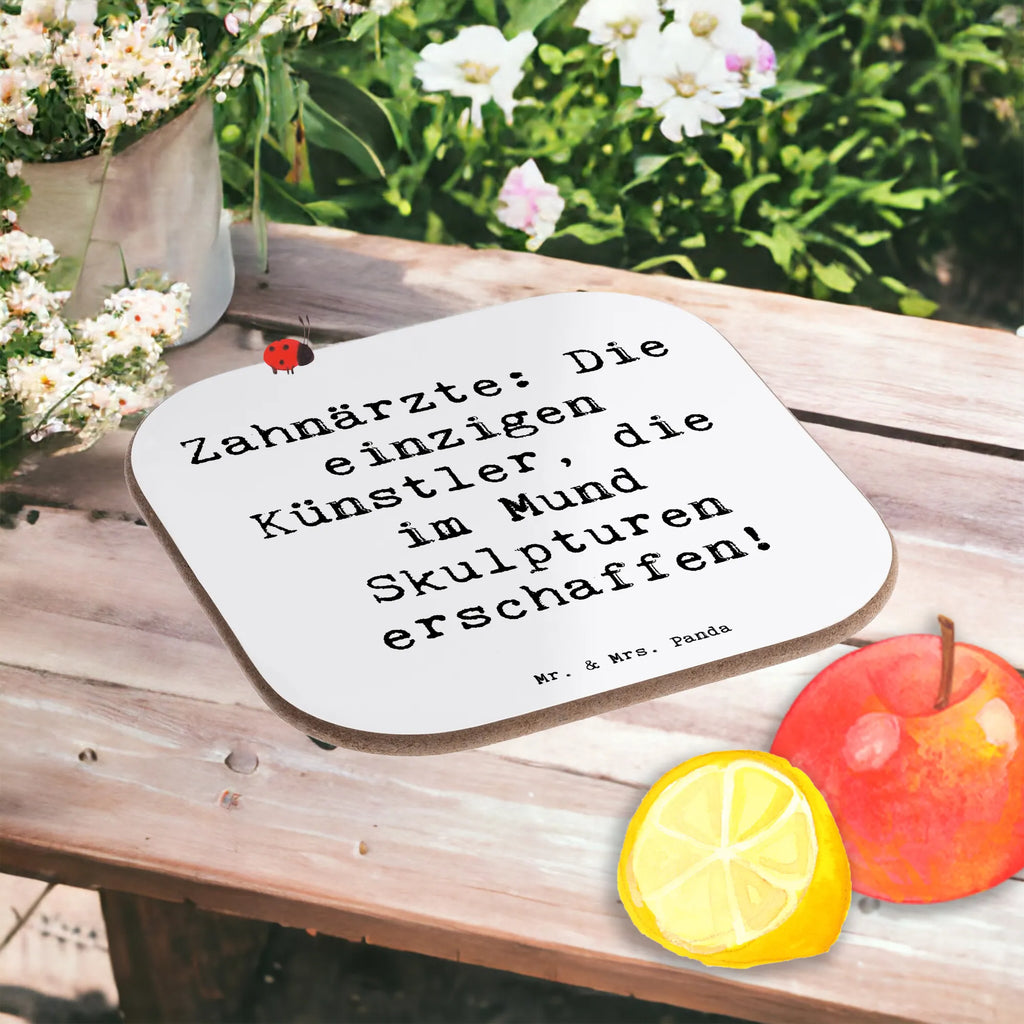 Zahnärzte: Die
einzigen
Künstler, die
im Mund
Skulpturen
erschaffen!
Mr. & Mrs. Panda